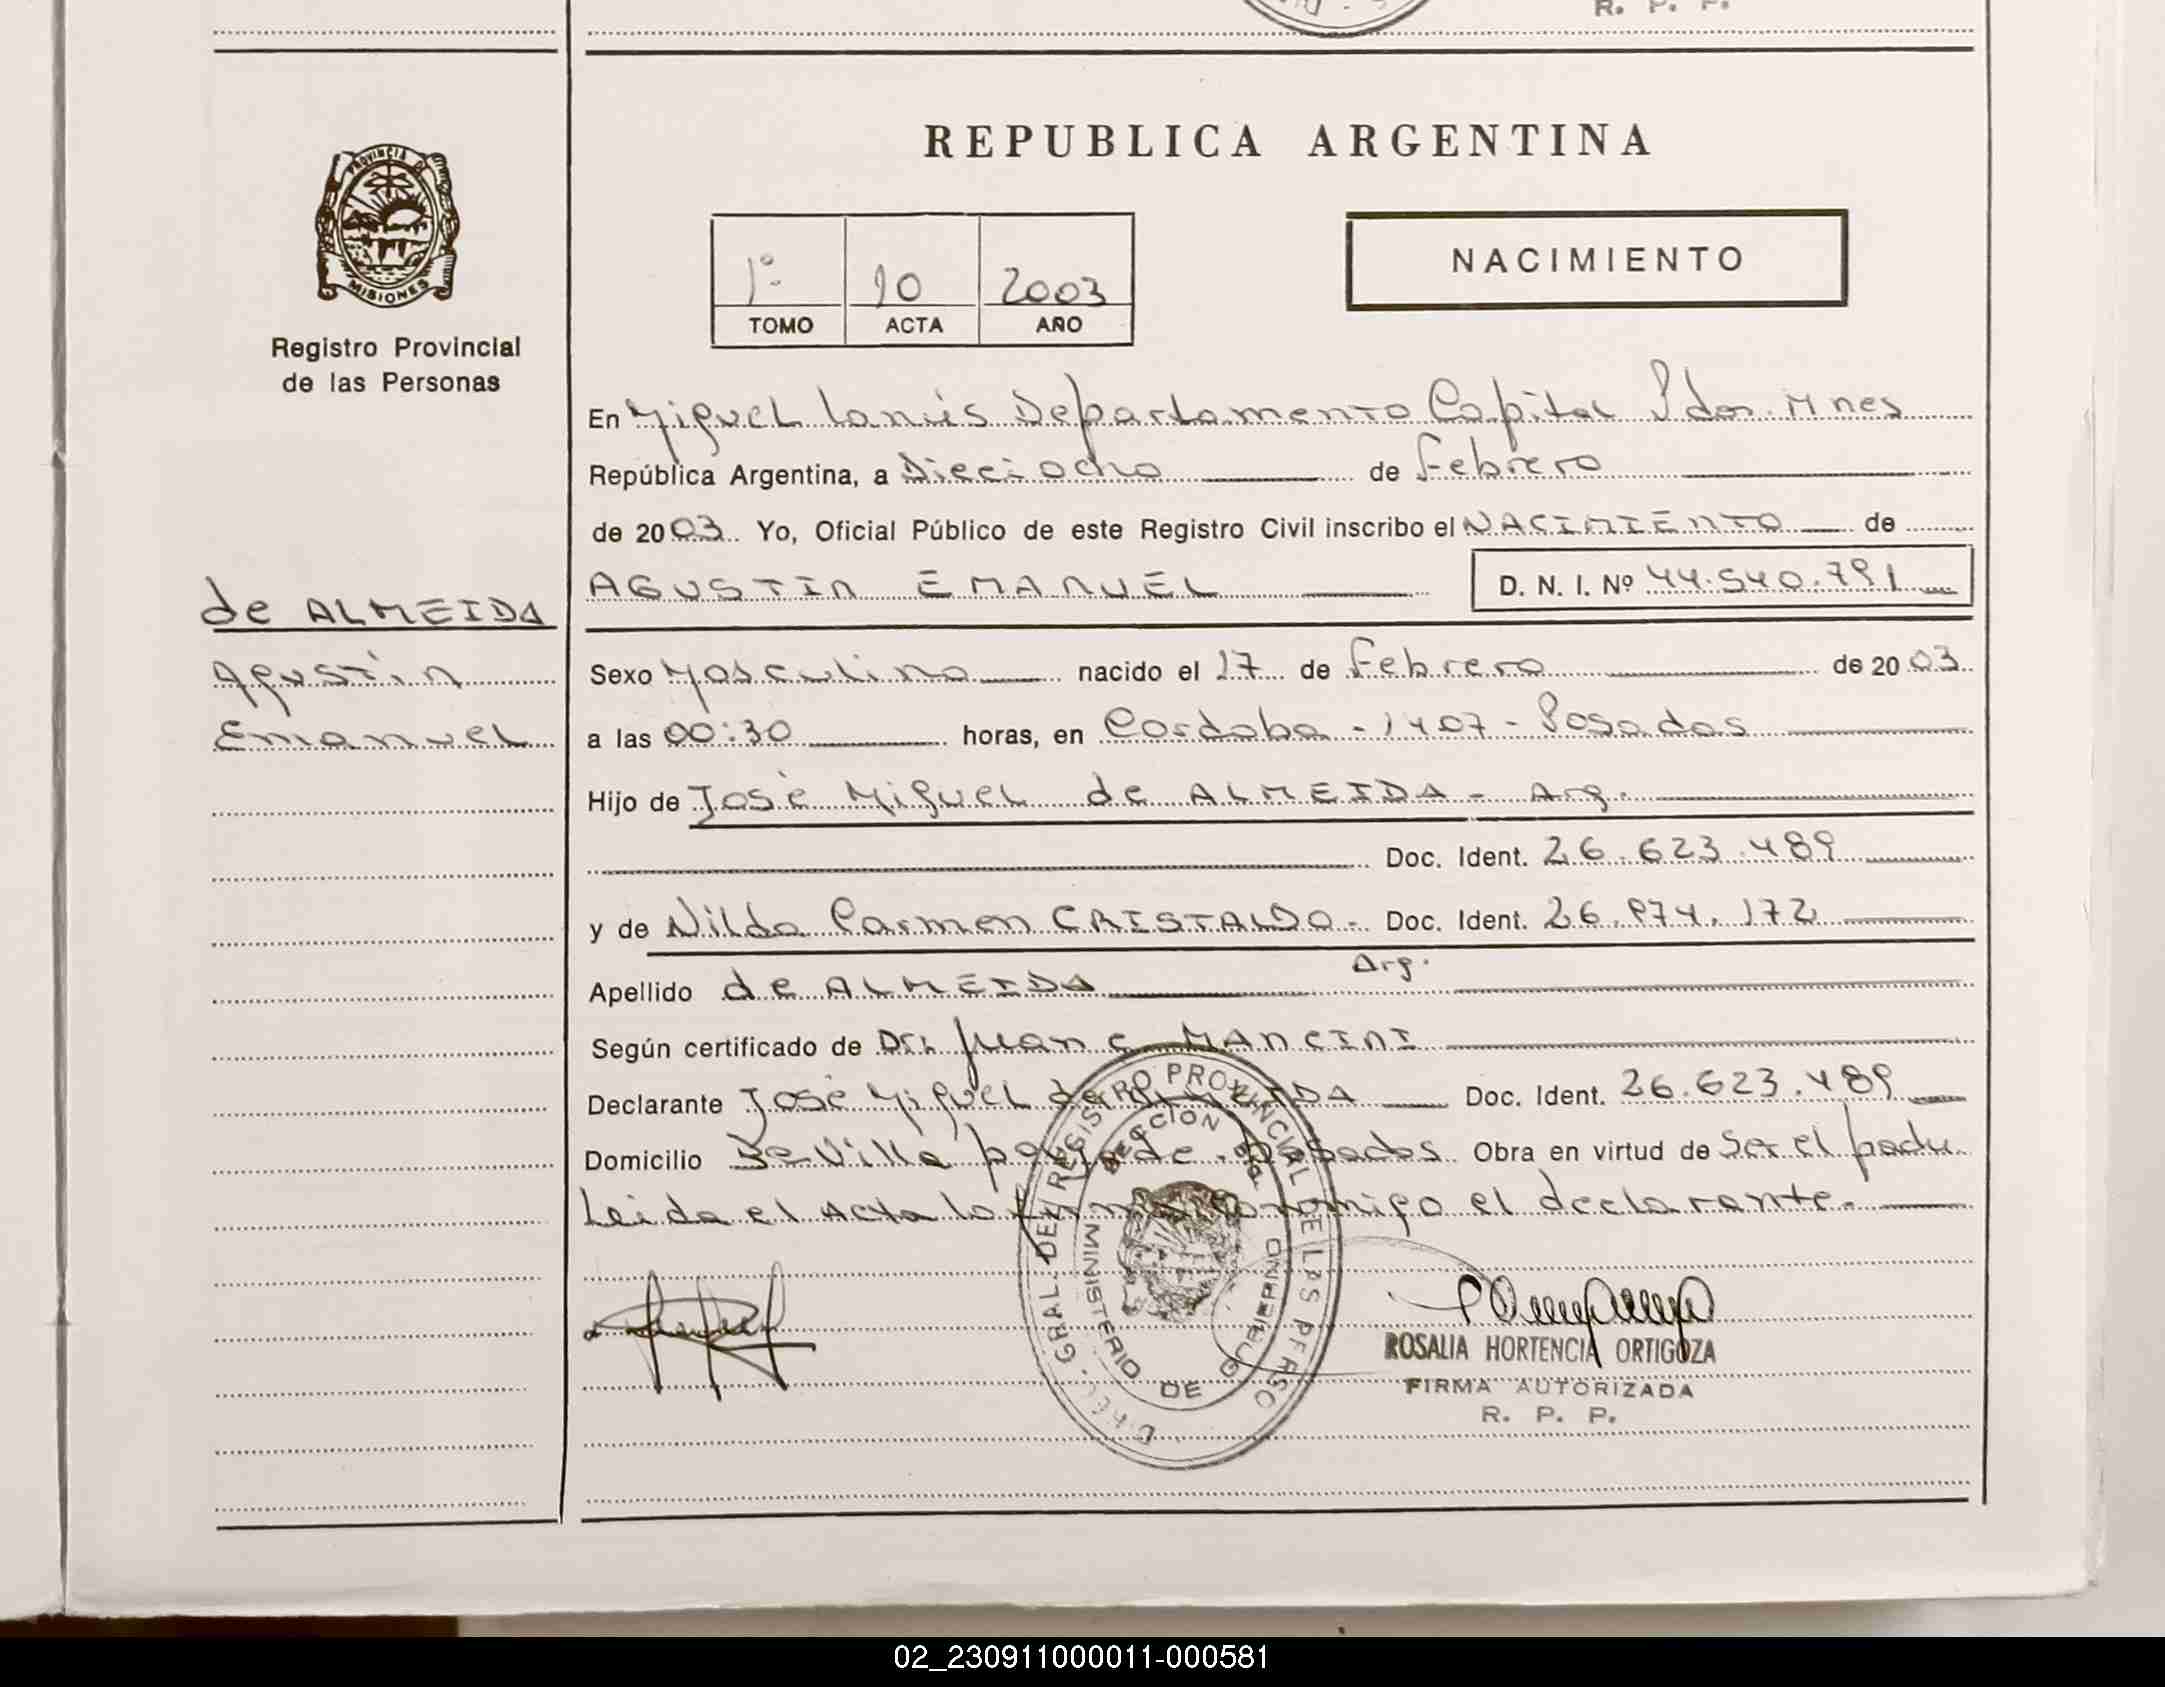 R. P. P.
PROVINCIA DE
MISIONES
Registro Provincial
de las Personas
REPUBLICA ARGENTINA
1º 10 2003
TOMO ACTA AÑO
NACIMIENTO
En Miguel Lanús Departamento Capital Pdas. Mnes
República Argentina, a Dieciocho de Febrero
de 2003. Yo, Oficial Público de este Registro Civil inscribo el NACIMIENTO de
AGUSTIN EMANUEL D. N. I. Nº 44.540.791
de ALMEIDA
Agustin
Emanuel
Sexo Masculino nacido el 17 de Febrero de 2003
a las 00:30 horas, en Cordoba - 1407 - Posadas
Hijo de José Miguel de ALMEIDA - Arg.
Doc. Ident. 26.623.489
y de Nilda Carmen CRISTALDO - Doc. Ident. 26.974.172
Arg.
Apellido de ALMEIDA
Según certificado de Dr. Juan C MANCINI
Declarante José Miguel de ALMEIDA Doc. Ident. 26.623.489
Domicilio Posadas Obra en virtud de Ser el padre
Leida el Acta la firma conmigo el declarante.-
DIREC. GRAL. DEL REGISTRO PROVINCIAL DE LAS PERSO
MINISTERIO DE GOBIERNO
ROSALIA HORTENCIA ORTIGOZA
FIRMA AUTORIZADA
R. P. P.
02_230911000011-000581